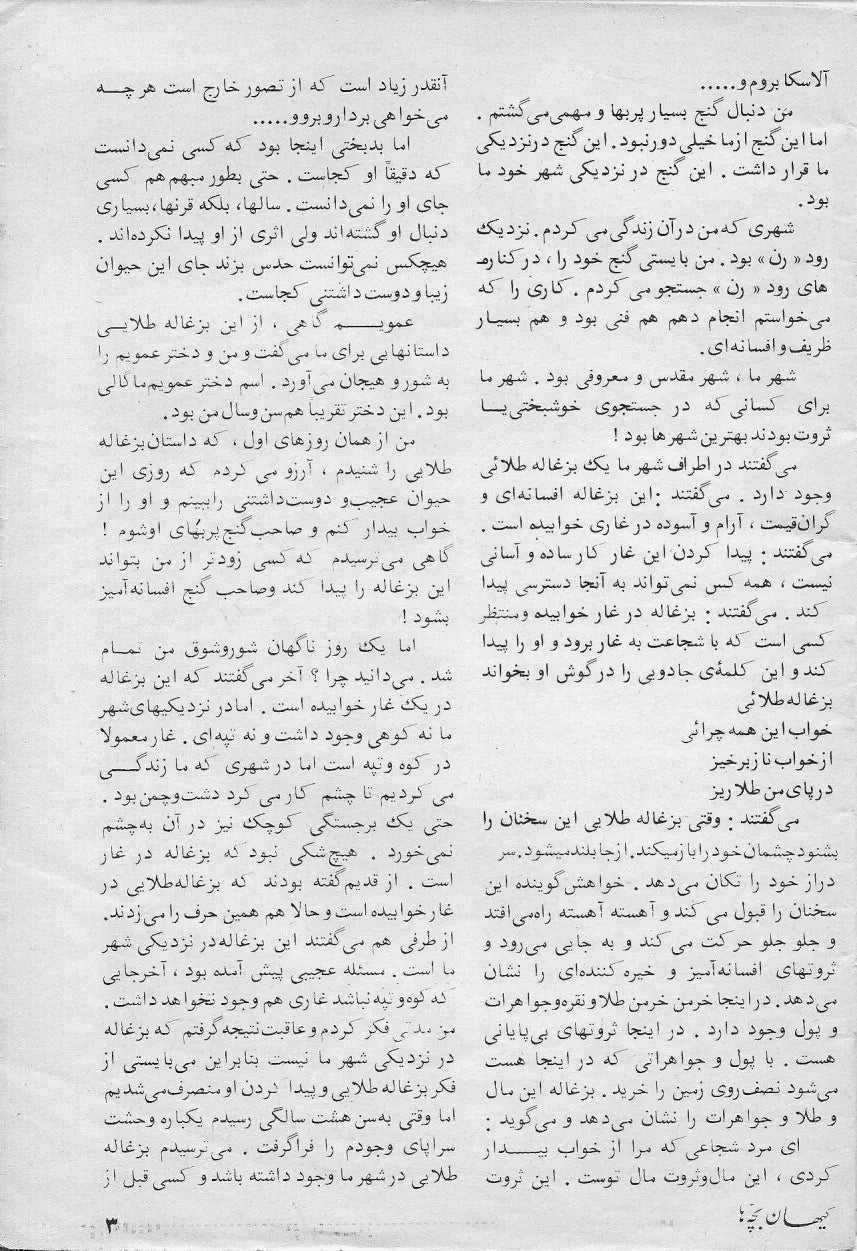 آلاسکا بروم و.....
من دنبال گنج بسیار پربها و مهمی می‌گشتم .
اما این گنج از ما خیلی دور نبود . این گنج در نزدیکی
ما قرار داشت . این گنج در نزدیکی شهر خود ما
بود .
شهری که من در آن زندگی می کردم . نزدیک
رود « رن » بود . من بایستی گنج خود را ، در کناره
های رود « رن » جستجو می کردم . کاری را که
می‌خواستم انجام دهم هم فنی بود و هم بسیار
ظریف و افسانه‌ای .
شهر ما ، شهر مقدس و معروفی بود . شهر ما
برای کسانی که در جستجوی خوشبختی یا
ثروت بودند بهترین شهرها بود !
می‌گفتند در اطراف شهر ما یک بزغاله طلائی
وجود دارد . می‌گفتند : این بزغاله افسانه‌ای و
گران‌قیمت ، آرام و آسوده در غاری خوابیده است .
می‌گفتند : پیدا کردن این غار کار ساده و آسانی
نیست ، همه کس نمی‌تواند به آنجا دسترسی پیدا
کند . می‌گفتند : بزغاله در غار خوابیده و منتظر
کسی است که با شجاعت به غار برود و او را پیدا
کند و این کلمهٔ‌ی جادویی را در گوش او بخواند
بزغاله طلائی
خواب این همه چرائی
از خواب ناز برخیز
در پای من طلا ریز
می‌گفتند : وقتی بزغاله طلایی این سخنان را
بشنود چشمان خود را باز میکند. از جا بلند میشود . سر
دراز خود را تکان می‌دهد . خواهش گوینده این
سخنان را قبول می کند و آهسته آهسته راه می‌افتد
و جلو جلو حرکت می کند و به جایی می‌رود و
ثروتهای افسانه‌آمیز و خیره کننده‌ای را نشان
می‌دهد . در اینجا خرمن خرمن طلا و نقره و جواهرات
و پول وجود دارد . در اینجا ثروتهای بی‌پایانی
هست . با پول و جواهراتی که در اینجا هست
می‌شود نصف روی زمین را خرید . بزغاله این مال
و طلا و جواهرات را نشان می‌دهد و می‌گوید :
ای مرد شجاعی که مرا از خواب بیدار
کردی ، این مال و ثروت مال توست . این ثروت
آنقدر زیاد است که از تصور خارج است هر چه
می‌خواهی بردار و برو و.....
اما بدبختی اینجا بود که کسی نمی‌دانست
که دقیقاً او کجاست . حتی بطور مبهم هم کسی
جای او را نمی‌دانست . سالها، بلکه قرنها، بسیاری
دنبال او گشته‌اند ولی اثری از او پیدا نکرده‌اند .
هیچکس نمی‌توانست حدس بزند جای این حیوان
زیبا و دوست داشتنی کجاست.
عمویم گاهی ، از این بزغاله طلایی
داستانهایی برای ما می‌گفت و من و دختر عمویم را
به شور و هیجان می‌آورد . اسم دختر عمویم ماگالی
بود . این دختر تقریباً هم سن و سال من بود .
من از همان روزهای اول ، که داستان بزغاله
طلایی را شنیدم ، آرزو می کردم که روزی این
حیوان عجیب و دوست‌داشتنی را ببینم و او را از
خواب بیدار کنم و صاحب گنج پربهای او شوم !
گاهی می‌ترسیدم که کسی زودتر از من بتواند
این بزغاله را پیدا کند و صاحب گنج افسانه‌آمیز
بشود !
اما یک روز ناگهان شور و شوق من تمام
شد . می‌دانید چرا ؟ آخر می‌گفتند که این بزغاله
در یک غار خوابیده است . اما در نزدیکیهای شهر
ما نه کوهی وجود داشت و نه تپه‌ای . غار معمولا
در کوه و تپه است اما در شهری که ما زندگی
می کردیم تا چشم کار می کرد دشت و چمن بود .
حتی یک برجستگی کوچک نیز در آن به‌چشم
نمی‌خورد . هیچ‌شکی نبود که بزغاله در غار
است . از قدیم گفته بودند که بزغاله طلایی در
غار خوابیده است و حالا هم همین حرف را می‌زدند.
از طرفی هم می‌گفتند این بزغاله در نزدیکی شهر
ما است . مسئله عجیبی پیش آمده بود ، آخر جایی
که کوه و تپه نباشد غاری هم وجود نخواهد داشت .
من مدتی فکر کردم و عاقبت نتیجه گرفتم که بزغاله
در نزدیکی شهر ما نیست بنابراین می‌بایستی از
فکر بزغاله طلایی و پیدا کردن او منصرف می‌شدیم
اما وقتی به‌سن هشت سالگی رسیدم یکباره وحشت
سراپای وجودم را فرا گرفت . می‌ترسیدم بزغاله
طلایی در شهر ما وجود داشته باشد و کسی قبل از
کیهان بچّه‌ها
۳